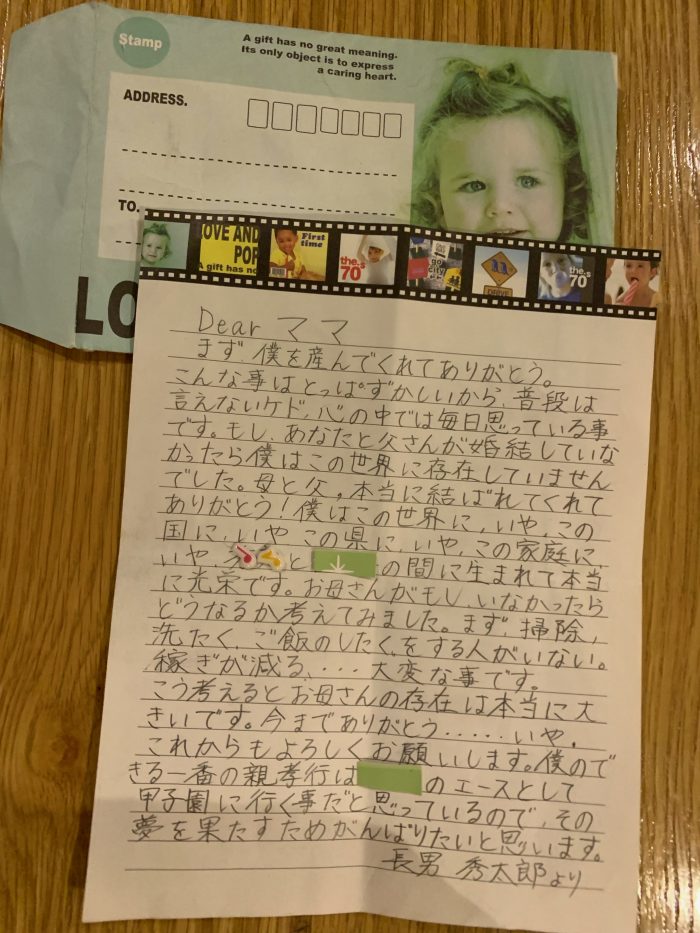 Stamp
A gift has no great meaning.
Its only object is to express
a caring heart.
ADDRESS.
TO.
LO
LOVE AND
POP
A gift has no
First
time
the.s
70'
go
city
DRIVE
the.s
70'
Dear ママ
まず、僕を産んでくれてありがとう。
こんな事はとっぱずかしいから、普段は
言えないケド、心の中では毎日思っている事
です。もし、あなたと父さんが婚結していな
かったら僕はこの世界に存在していません
でした。母と父。本当に結ばれてくれて
ありがとう!僕はこの世界に、いや、この
国に、いや、この県に、いや、この家庭に、
いや、 と の間に生まれて本当
に光栄です。お母さんがもし、いなかったら
どうなるか考えてみました。まず、掃除、
洗たく、ご飯のしたく、をする人がいない。
稼ぎが減る、・・・大変な事です。
こう考えるとお母さんの存在は本当に大
きいです。今までありがとう・・・・・いや、
これからもよろしくお願いします。僕ので
きる一番の親孝行は のエースとして
甲子園に行く事だと思っているので、その
夢を果たすためがんばりたいと思います。
長男 秀太郎より